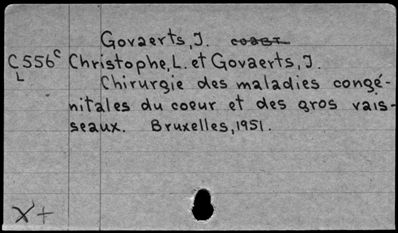 Govaerts, J. coaut.
C556c Christophe, L. et Govaerts, J.
L
Chirurgie des maladies congé-
nitales du coeur et des gros vais-
seaux. Bruxelles, 1951.
X+